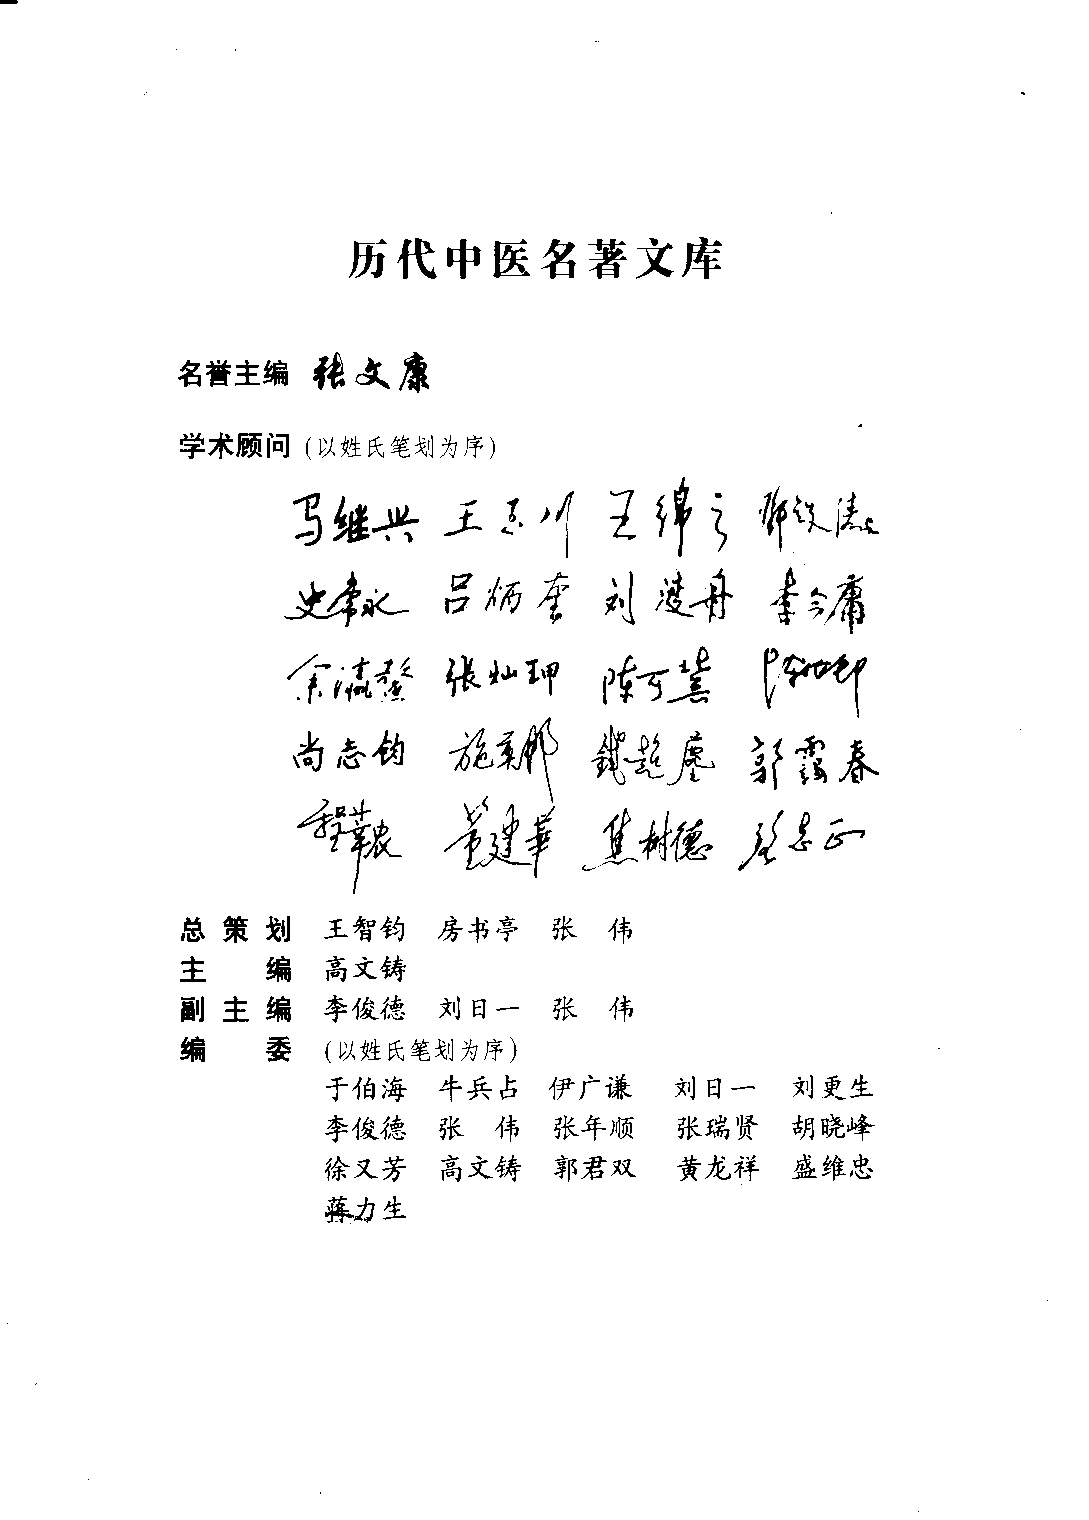 历代中医名著文库
名誉主编 张文康
学术顾问 (以姓氏笔划为序)
马继兴 王玉川 王绵之 邓铁涛
史常永 吕炳奎 刘渡舟 李今庸
余瀛鳌 张灿玾 陈可冀
尚志钧 施奠邦 钱超尘 郭霭春
程莘农 董建华 焦树德 路志正
总策划 王智钧 房书亭 张 伟
主 编 高文铸
副主编 李俊德 刘日一 张 伟
编 委 (以姓氏笔划为序)
于伯海 牛兵占 伊广谦 刘日一 刘更生
李俊德 张 伟 张年顺 张瑞贤 胡晓峰
徐又芳 高文铸 郭君双 黄龙祥 盛维忠
蒋力生